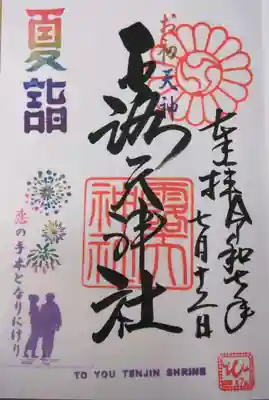 奉拝 令和七年
お初天神
露天神社
露天
神社
夏詣
恋の手本となりにけり
TO YOU TENJIN SHRINE